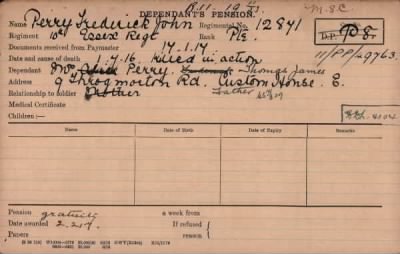 DEPENDANT'S PENSION.
Name Perry Frederick John Regimental No. 12841
Regiment 10th Essex Regt Rank Pte
D.P. P 8
Documents received from Paymaster 17.1.17
11/PP/29763
Date and cause of death 1.7.16. Killed in action
Dependant Mrs Perry, Thomas James
9 Throgmorton Rd, Custom House. E.
Relationship to soldier Mother Father
Medical Certificate
Children:—
Name Date of Birth Date of Expiry Remarks
Pension gratuity a week from
Date awarded 2.2.17 If refused
Papers reason